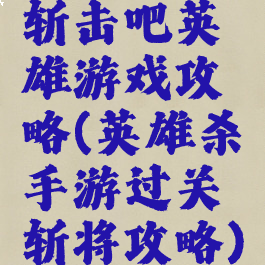 斩击吧英
雄游戏攻
略(英雄杀
手游过关
斩将攻略)